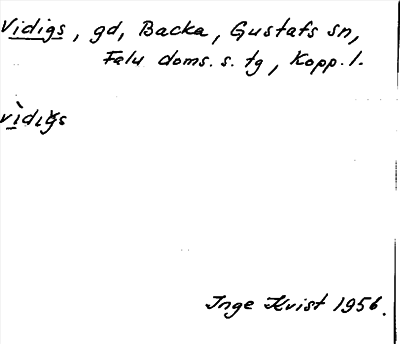 Vidigs, gd, Backa, Gustafs sn,
Falu doms. s. tg, Kopp. l.
Inge Kvist 1956.